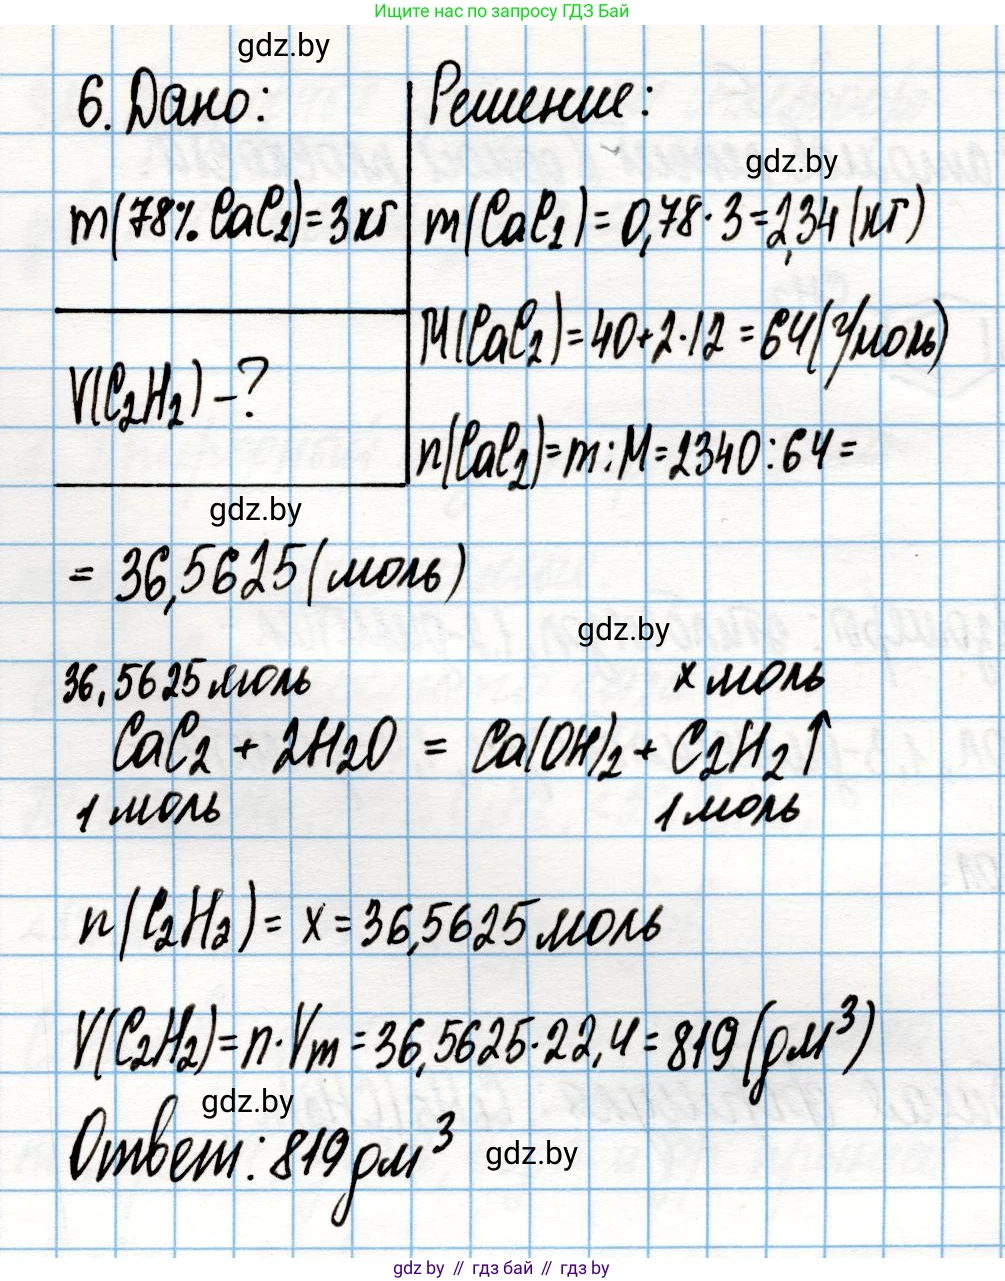 Ищите нас по запросу ГДЗ Бай
gdz.by
6. Дано:
Решение:
gdz.by
m(78% CaC₂)=3кг
m(CaC₂)=0,78·3=2,34(кг)
M(CaC₂)=40+2·12=64(г/моль)
V(C₂H₂)-?
n(CaC₂)=m:M=2340:64=
gdz.by
= 36,5625(моль)
gdz.by
36,5625моль x моль
CaC₂ + 2H₂O = Ca(OH)₂ + C₂H₂↑
1 моль 1 моль
n(C₂H₂)= x=36,5625моль
V(C₂H₂)=n·Vm=36,5625·22,4=819(дм³)
gdz.by
Ответ: 819дм³
gdz.by
gdz by // гдз бай // gdz by